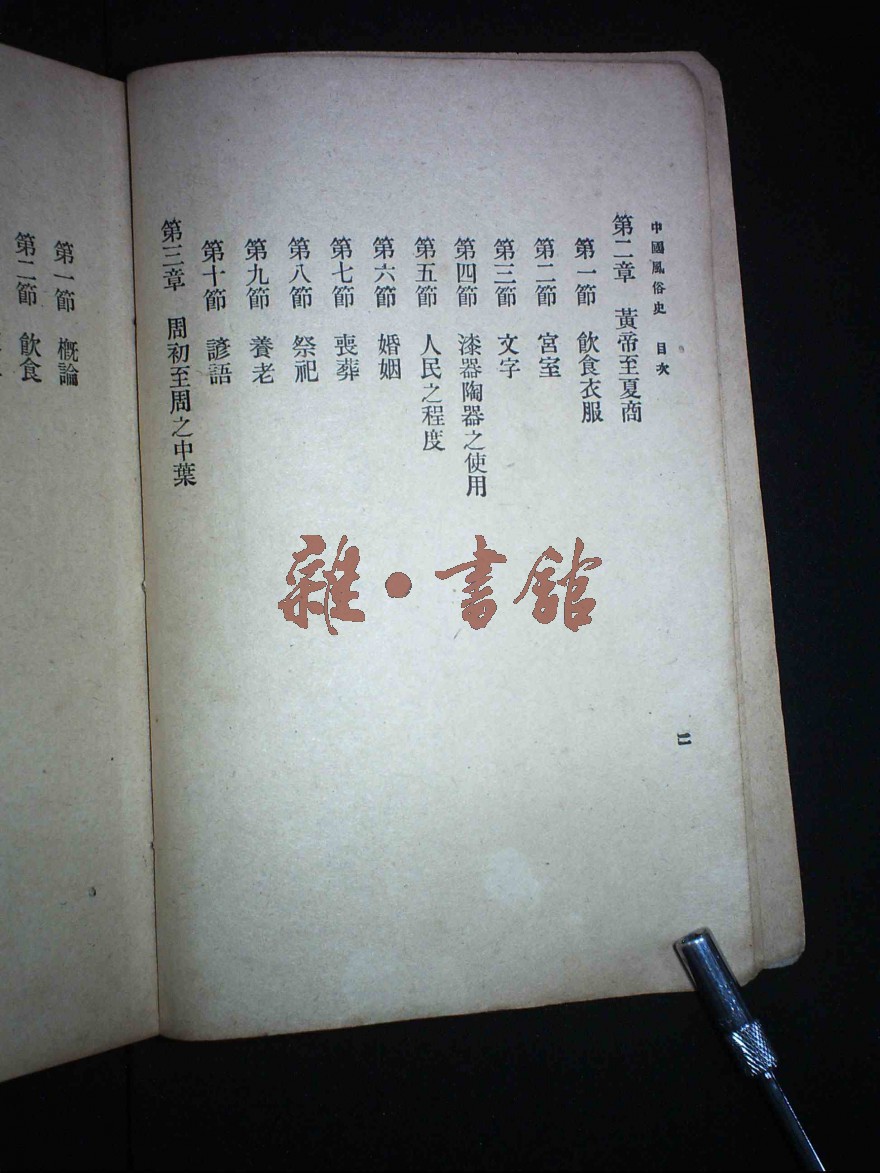 中國風俗史 目次
第二章 黃帝至夏商
第一節 飲食衣服
第二節 宮室
第三節 文字
第四節 漆器陶器之使用
第五節 人民之程度
第六節 婚姻
第七節 喪葬
第八節 祭祀
第九節 養老
第十節 諺語
第三章 周初至周之中葉
二
第一節 概論
第二節 飲食
雜·書館